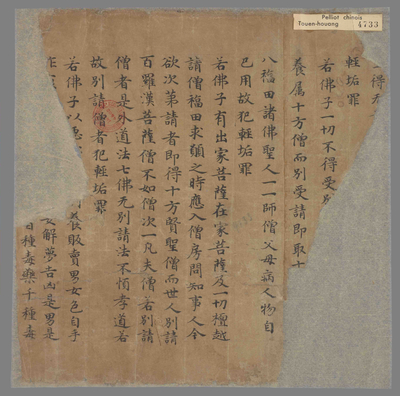 Pelliot chinois
Touen-houang 4733
得
輕垢罪
若佛子一切不得受別
養属十方僧而別受請即取十
八福田諸佛聖人一一師僧父母病人物自
已用故犯輕垢罪
若佛子有出家菩薩在家菩薩及一切檀越
請僧福田求願之時應入僧房問知事人今
欲次第請者即得十方賢聖僧而世人別請
百羅漢菩薩僧不如僧次一凡夫僧若別請
僧者是外道法七佛无別請法不順孝道若
故別請僧者犯輕垢罪
若佛子以惡
養販賣男女色自手
解夢吉凶是男是
百種毒藥千種毒